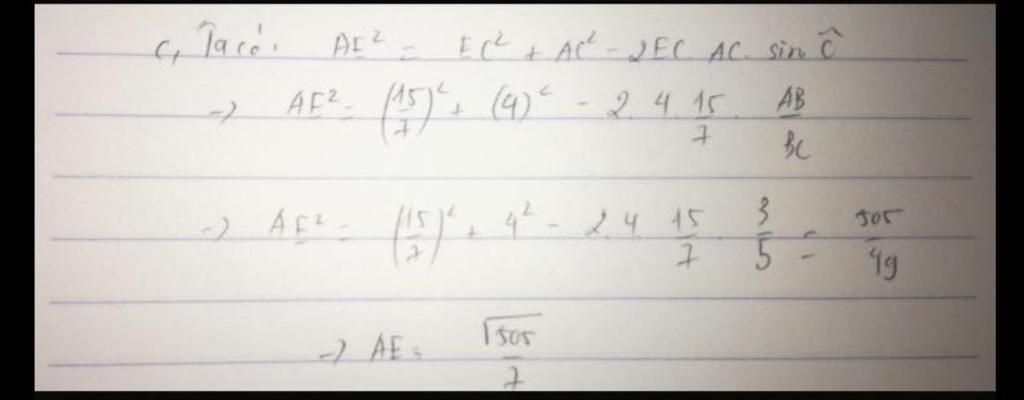 c, Ta có: AE² = EC² + AC² - 2EC. AC. sin Ĉ
→ AE² = (15/7)² + (4)² - 2. 4. 15/7 . AB/BC
→ AE² = (15/7)² + 4² - 2.4 15/7 . 3/5 = 505/49
→ AE = √505/7